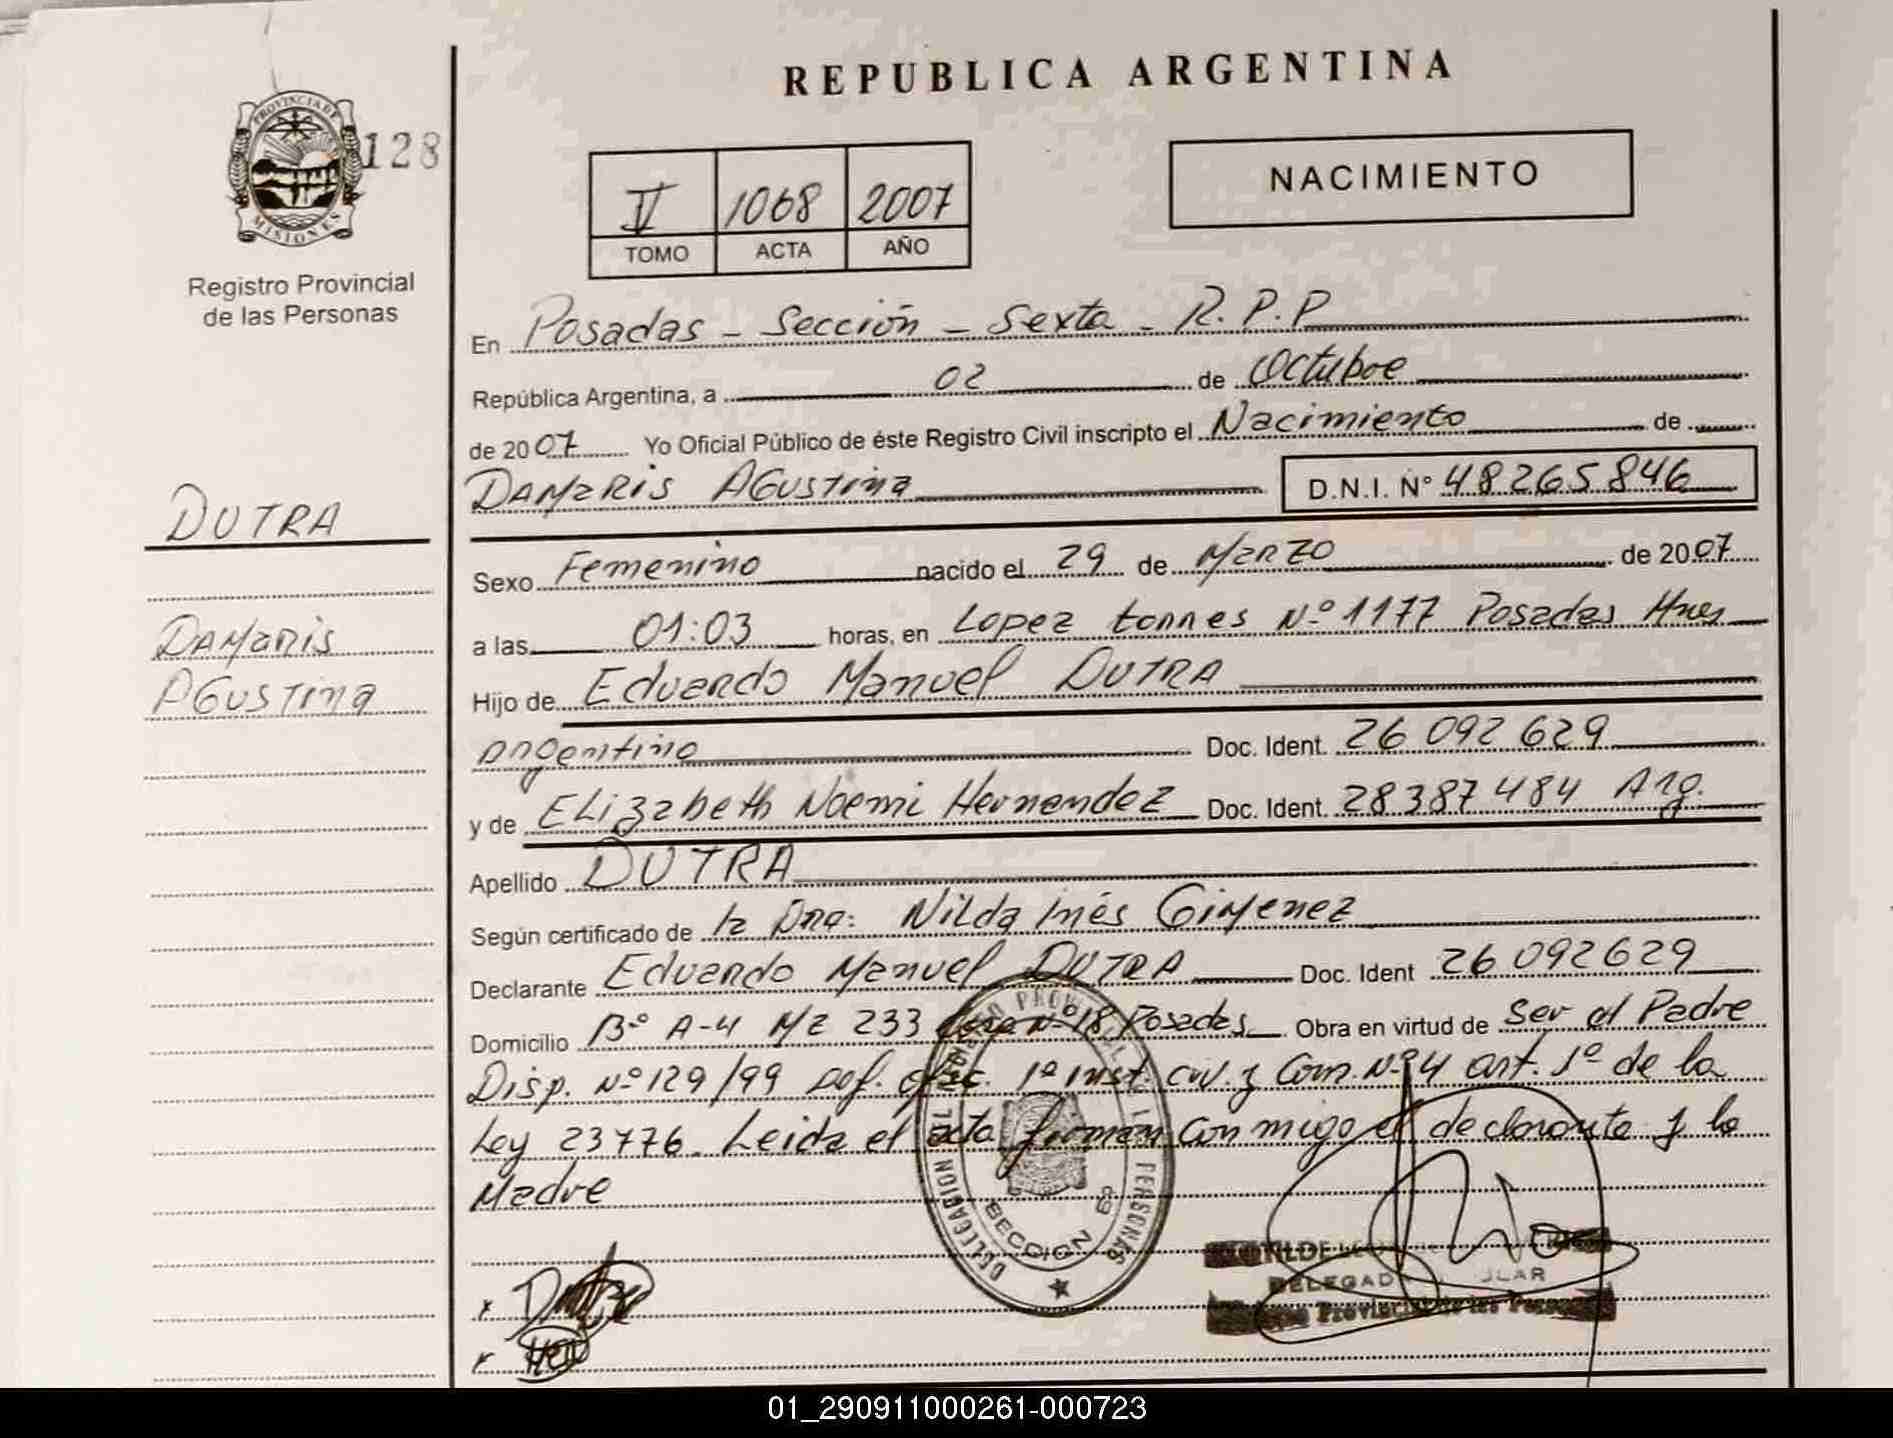 REPUBLICA ARGENTINA
PROVINCIA DE
MISIONES
128
Registro Provincial
de las Personas
IV 1068 2007
TOMO ACTA AÑO
NACIMIENTO
En Posadas - Sección - Sexta - R.P.P
República Argentina, a 02 de Octubre
de 2007 Yo Oficial Público de éste Registro Civil inscripto el Nacimiento de
DAMARIS AGUSTINA D.N.I. N° 48265846
DUTRA
DAMARIS
AGUSTINA
Sexo Femenino nacido el 29 de Marzo de 2007
a las 01:03 horas, en Lopez torres Nº 1177 Posadas Mnes
Hijo de Eduardo Manuel DUTRA
argentino Doc. Ident. 26 092 629
y de Elizabeth Noemi Hernandez Doc. Ident. 28387484 Arg.
Apellido DUTRA
Según certificado de la Dra: Nilda Inés Gimenez
Declarante Eduardo Manuel DUTRA Doc. Ident 26 092629
Domicilio Bº A-4 Mz 233 Casa Nº 18 Posadas Obra en virtud de Ser el Padre
Disp. Nº 129/99 Def. Ofic. 1ª inst. civ. y Com. Nº 4 art. 1º de la
Ley 23776. Leida el acta firman conmigo el declarante y la
Madre
DELEGACION
SECCION 6ª
PERSONAS
DELEGAD
Provincial de las Personas
01_290911000261-000723